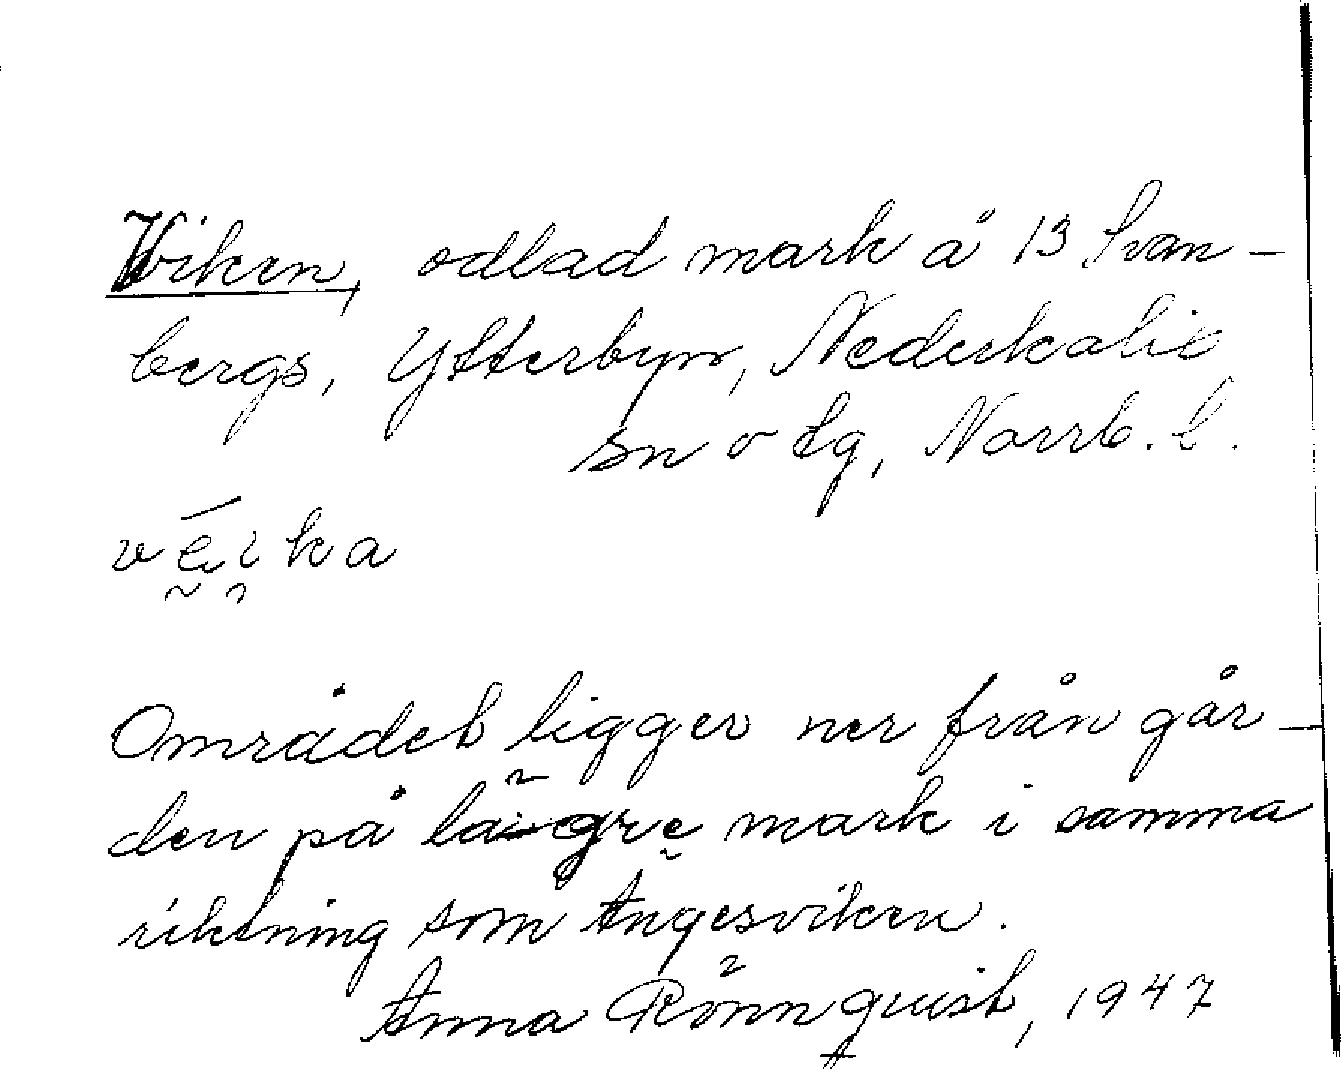 Viken, odlad mark å 13 Svan-
bergs, Ytterbyn, Nederkalix
sn o tg, Norrb. l.
véika
Området ligger ner från går-
den på lägre mark i samma
riktning som Ängesviken.
Anna Rönnquist, 1947